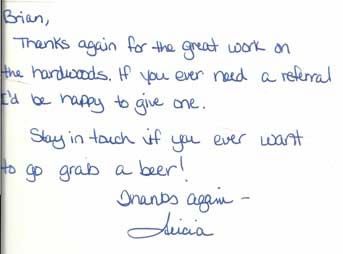 Brian,
Thanks again for the great work on
the hardwoods. If you ever need a referral
I'd be happy to give one.
Stay in touch if you ever want
to go grab a beer!
Thanks again -
Alicia